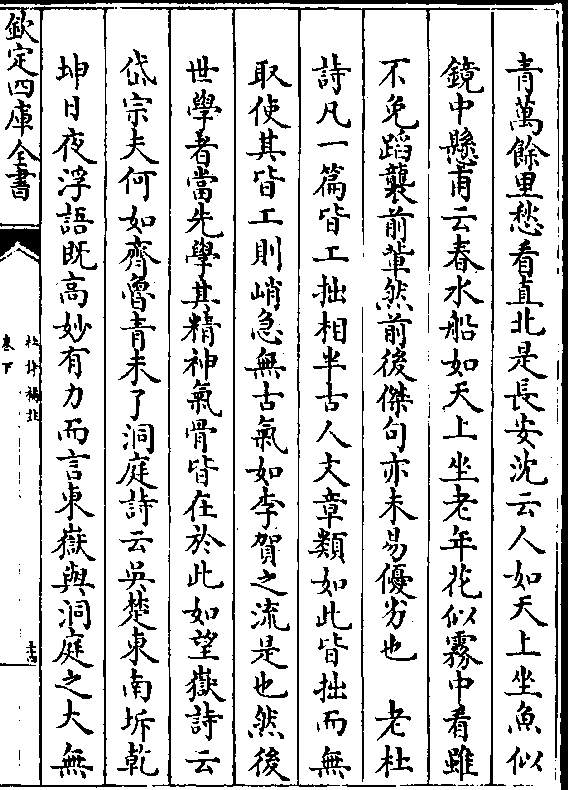 青萬餘里愁看直北是長安沈云人如天上坐魚似
鏡中懸甫云春水船如天上坐老年花似霧中看雖
不免蹈襲前輩然前後傑句亦未易優劣也　老杜
詩凡一篇皆工拙相半古人文章類如此皆拙而無
取使其皆工則峭急無古氣如李賀之流是也然後
世學者當先學其精神氣骨皆在於此如望嶽詩云
岱宗夫何如齊魯青未了洞庭詩云吳楚東南坼乾
坤日夜浮語既高妙有力而言東嶽與洞庭之大無
欽定四庫全書
卷下